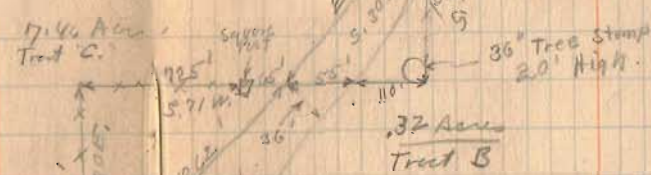 7.46 Acres
Tract "C."
Square
S. 30
36" Tree Stump
20' High.
725'
S. 71 W.
55'
110'
36'
.32 Acres
Tract B